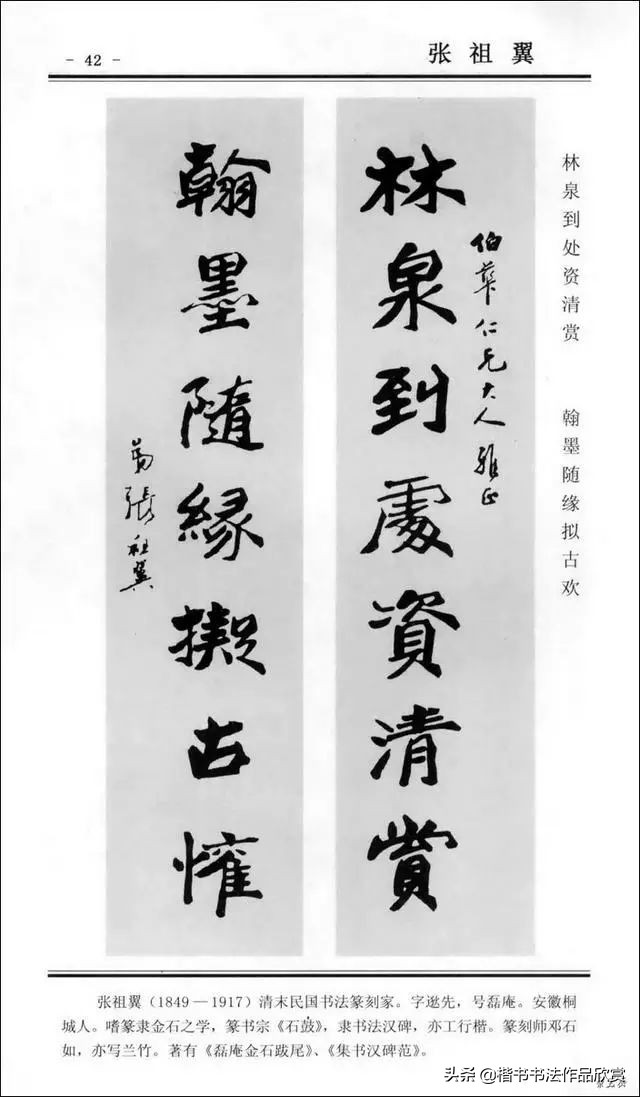 - 42 -
张祖翼
林泉到处资清赏
翰墨随缘拟古欢
伯華仁兄大人雅正
林泉到處資清賞
翰墨隨緣擬古懽
弟張祖翼
张祖翼(1849—1917)清末民国书法篆刻家。字逖先，号磊庵。安徽桐
城人。嗜篆隶金石之学，篆书宗《石鼓》，隶书法汉碑，亦工行楷。篆刻师邓石
如，亦写兰竹。著有《磊庵金石跋尾》、《集书汉碑范》。
头条@楷书书法作品欣赏